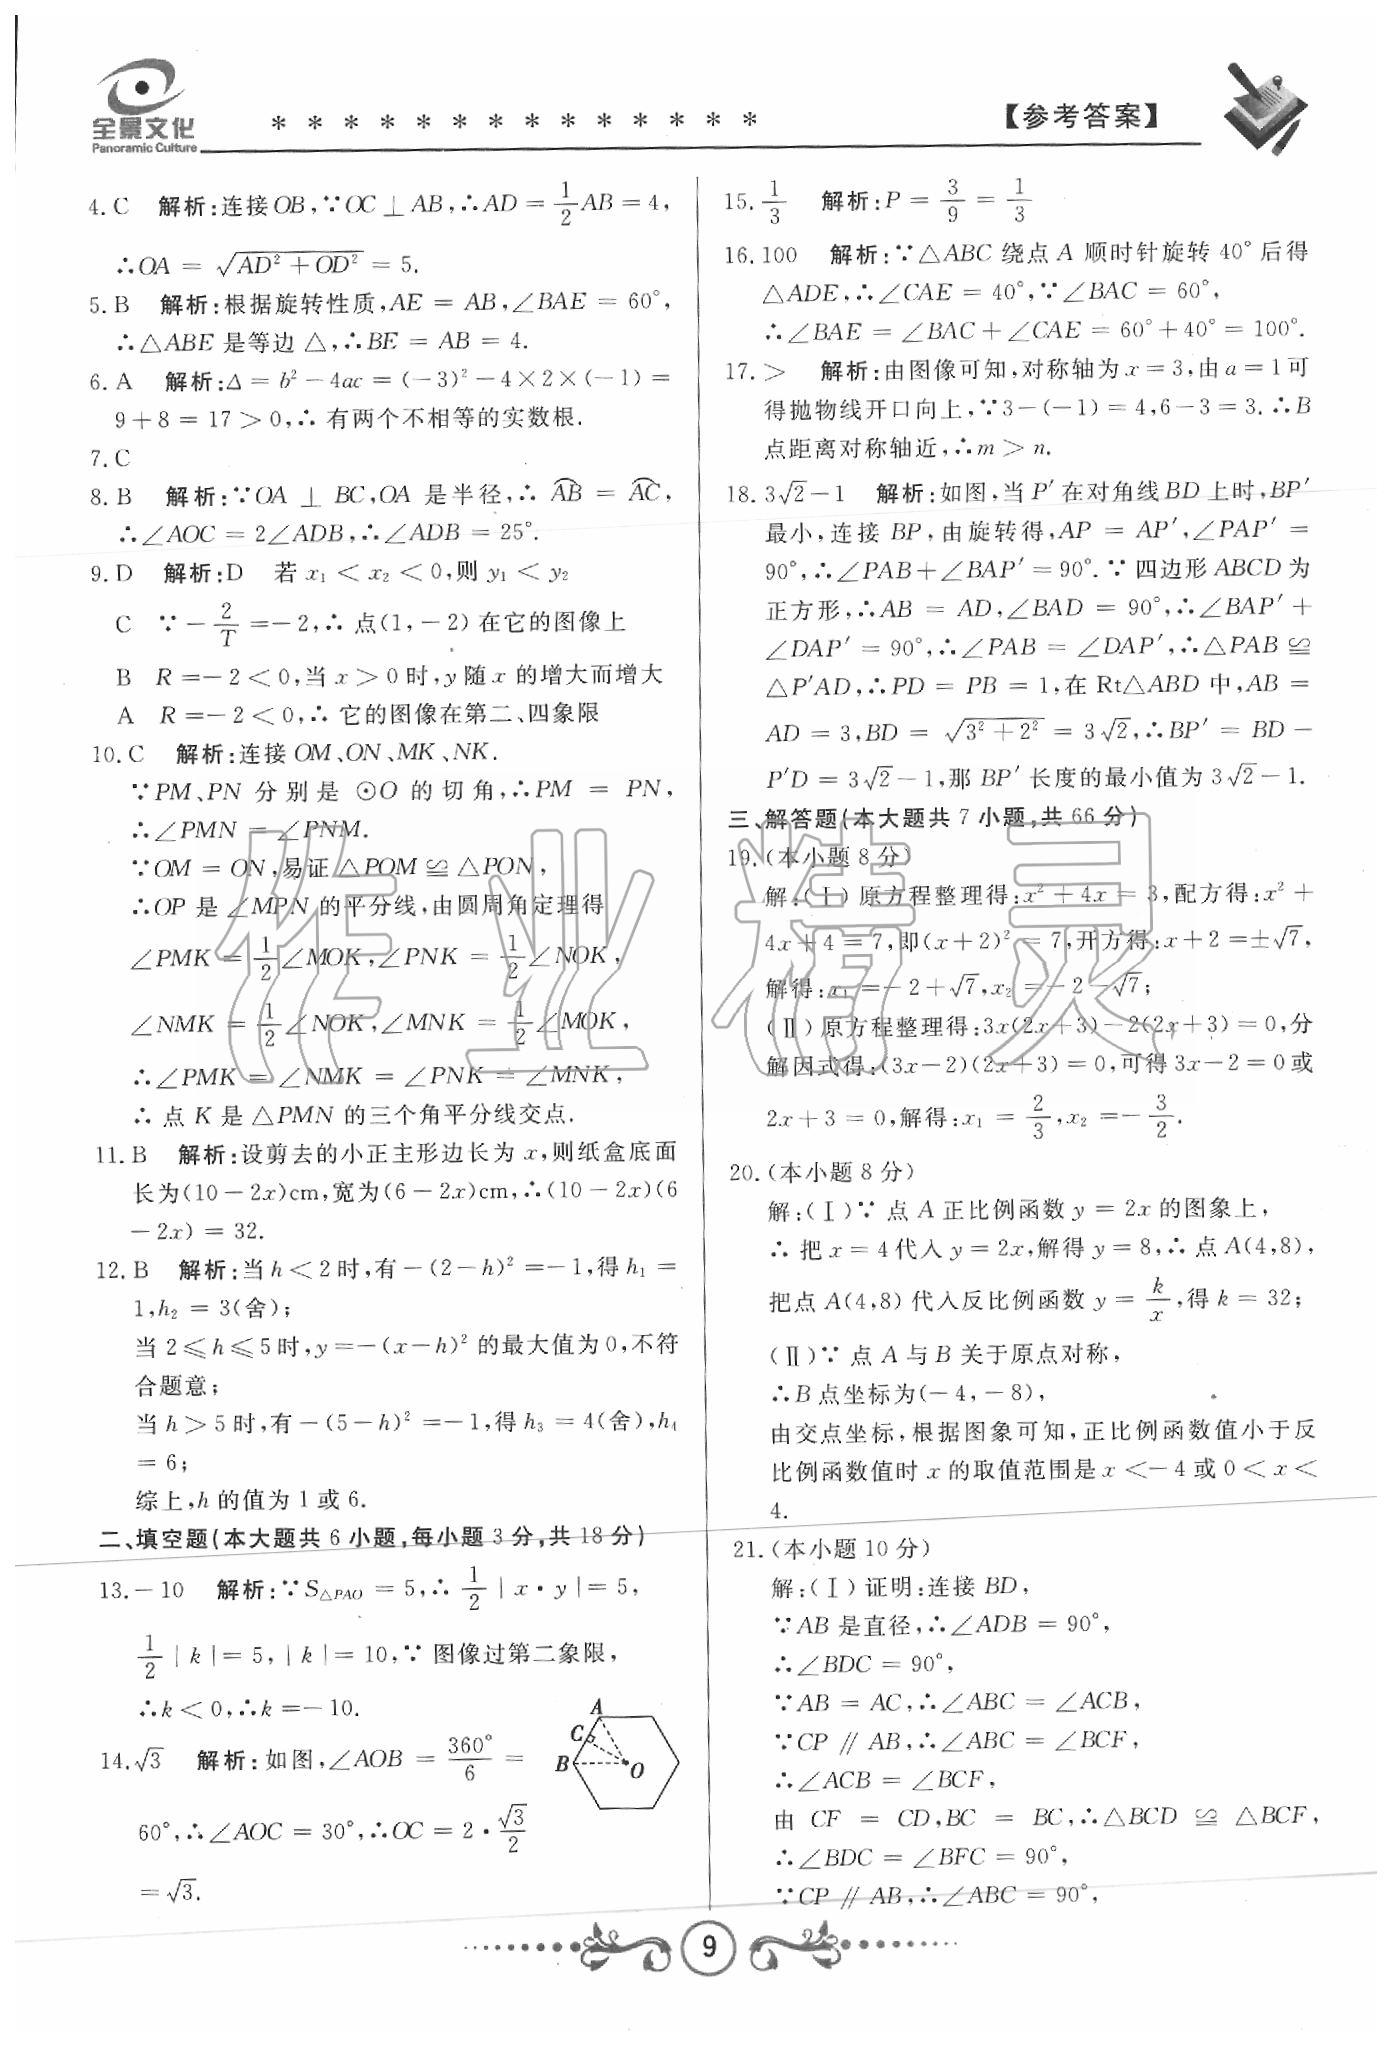 全景文化
Panoramic Culture
* * * * * * * * * * * * * *
【参考答案】
4.C 解析:连接OB,∵OC⊥AB,∴AD=1/2AB=4,
∴OA=√(AD²+OD²)=5.
5.B 解析:根据旋转性质,AE=AB,∠BAE=60°,
∴△ABE是等边△,∴BE=AB=4.
6.A 解析:Δ=b²-4ac=(-3)²-4×2×(-1)=
9+8=17>0,∴有两个不相等的实数根.
7.C
8.B 解析:∵OA⊥BC,OA是半径,∴⌒AB=⌒AC,
∴∠AOC=2∠ADB,∴∠ADB=25°.
9.D 解析:D 若x₁<x₂<0,则y₁<y₂
C ∵-2/T=-2,∴点(1,-2)在它的图像上
B R=-2<0,当x>0时,y随x的增大而增大
A R=-2<0,∴它的图像在第二、四象限
10.C 解析:连接OM、ON、MK、NK.
∵PM、PN分别是⊙O的切角,∴PM=PN,
∴∠PMN=∠PNM.
∵OM=ON,易证△POM≌△PON,
∴OP是∠MPN的平分线,由圆周角定理得
∠PMK=1/2∠MOK,∠PNK=1/2∠NOK,
∠NMK=1/2∠NOK,∠MNK=1/2∠MOK,
∴∠PMK=∠NMK=∠PNK=∠MNK,
∴点K是△PMN的三个角平分线交点.
11.B 解析:设剪去的小正主形边长为x,则纸盒底面
长为(10-2x)cm,宽为(6-2x)cm,∴(10-2x)(6
-2x)=32.
12.B 解析:当h<2时,有-(2-h)²=-1,得h₁=
1,h₂=3(舍);
当2≤h≤5时,y=-(x-h)²的最大值为0,不符
合题意;
当h>5时,有-(5-h)²=-1,得h₃=4(舍),h₄
=6;
综上,h的值为1或6.
二、填空题(本大题共6小题,每小题3分,共18分)
13.-10 解析:∵S△PAO=5,∴1/2|x·y|=5,
1/2|k|=5,|k|=10,∵图像过第二象限,
∴k<0,∴k=-10.
14.√3 解析:如图,∠AOB=360°/6=
60°,∴∠AOC=30°,∴OC=2·√3/2
=√3.
A
C
B
O
15.1/3 解析:P=3/9=1/3
16.100 解析:∵△ABC绕点A顺时针旋转40°后得
△ADE,∴∠CAE=40°,∵∠BAC=60°,
∴∠BAE=∠BAC+∠CAE=60°+40°=100°.
17.> 解析:由图像可知,对称轴为x=3,由a=1可
得抛物线开口向上,∵3-(-1)=4,6-3=3.∴B
点距离对称轴近,∴m>n.
18.3√2-1 解析:如图,当P′在对角线BD上时,BP′
最小,连接BP,由旋转得,AP=AP′,∠PAP′=
90°,∴∠PAB+∠BAP′=90°.∵四边形ABCD为
正方形,∴AB=AD,∠BAD=90°,∴∠BAP′+
∠DAP′=90°,∴∠PAB=∠DAP′,∴△PAB≌
△P′AD,∴PD=PB=1,在Rt△ABD中,AB=
AD=3,BD=√(3²+2²)=3√2,∴BP′=BD-
P′D=3√2-1,那BP′长度的最小值为3√2-1.
三、解答题(本大题共7小题,共66分)
19.(本小题8分)
解:(Ⅰ)原方程整理得:x²+4x=3,配方得:x²+
4x+4=7,即(x+2)²=7,开方得:x+2=±√7,
解得:x₁=-2+√7,x₂=-2-√7;
(Ⅱ)原方程整理得:3x(2x+3)-2(2x+3)=0,分
解因式得:(3x-2)(2x+3)=0,可得3x-2=0或
2x+3=0,解得:x₁=2/3,x₂=-3/2.
20.(本小题8分)
解:(Ⅰ)∵点A正比例函数y=2x的图象上,
∴把x=4代入y=2x,解得y=8,∴点A(4,8),
把点A(4,8)代入反比例函数y=k/x,得k=32;
(Ⅱ)∵点A与B关于原点对称,
∴B点坐标为(-4,-8),
由交点坐标,根据图象可知,正比例函数值小于反
比例函数值时x的取值范围是x<-4或0<x<
4.
21.(本小题10分)
解:(Ⅰ)证明:连接BD,
∵AB是直径,∴∠ADB=90°,
∴∠BDC=90°,
∵AB=AC,∴∠ABC=∠ACB,
∵CP∥AB,∴∠ABC=∠BCF,
∴∠ACB=∠BCF,
由CF=CD,BC=BC,∴△BCD≌△BCF,
∴∠BDC=∠BFC=90°,
∵CP∥AB,∴∠ABC=90°,
作业精灵
9